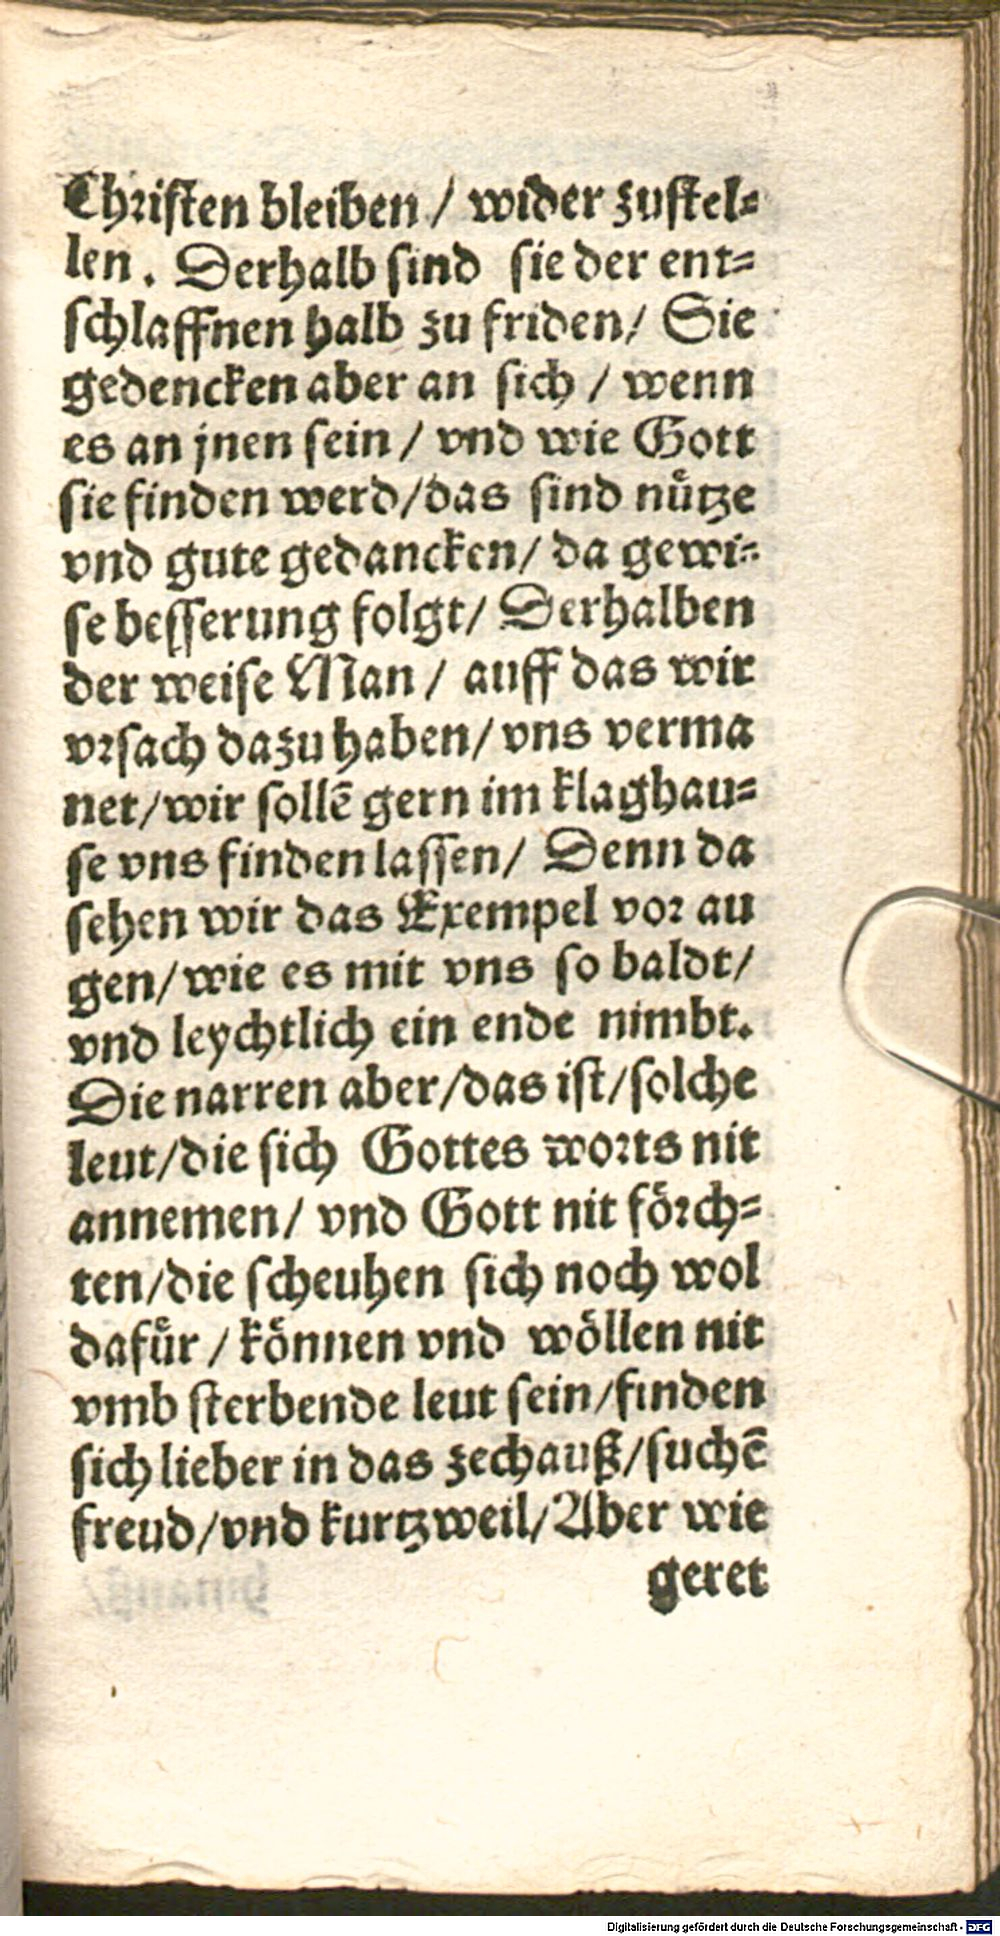 Christen bleiben / wider zustel⸗
len. Derhalb sind sie der ent⸗
schlaffnen halb zu friden/ Sie
gedencken aber an sich / wenn
es an jnen sein / vnd wie Gott
sie finden werd/das sind nütze
vnd gute gedancken/ da gewi⸗
se besserung folgt/ Derhalben
der weise Man / auff das wir
vrsach dazu haben/vns verma
net/wir sollē gern im klaghau⸗
se vns finden lassen/ Denn da
sehen wir das Exempel vor au
gen/wie es mit vns so baldt/
vnd leychtlich ein ende nimbt.
Die narren aber/das ist/solche
leut/die sich Gottes worts nit
annemen/ vnd Gott nit förch⸗
ten/die scheuhen sich noch wol
dafür / können vnd wöllen nit
vmb sterbende leut sein/finden
sich lieber in das zechauß/suchē
freud/vnd kurtzweil/Aber wie
geret
Digitalisierung gefördert durch die Deutsche Forschungsgemeinschaft - DFG